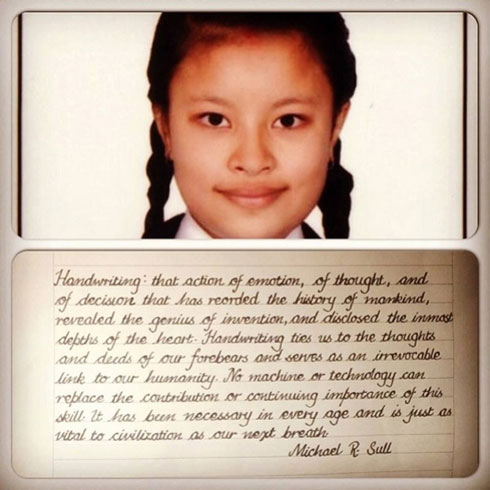 Handwriting: that action of emotion, of thought, and
of decision that has reorded the history of mankind,
revealed the genius of invention, and disclosed the inmost
depths of the heart. Handwriting ties us to the thoughts
and deeds of our forebears and serves as an irrevocable
link to our humanity. No machine or technology can
replace the contribution or continuing importance of this
skill. It has been necessary in every age and is just as
vital to civilization as our next breath
Michael R. Sull